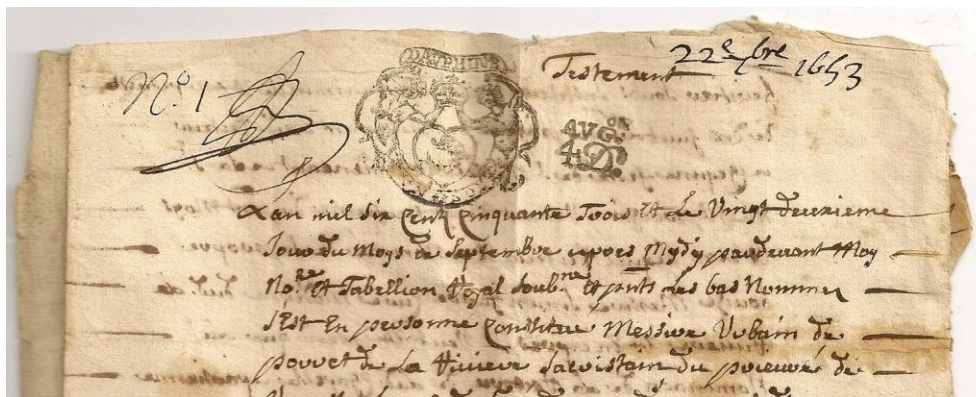 Testement 22e 7bre 1653
No. 1
DAVPHINE
AVGon
4 D.
Lan mil six Cent Cinquante Trois Et Le Vingt deuxieme
Jour du Moys de Septembre apres Mydy pardevant Moy
No.re Et Tabellion Royal Soub.ne Et pnts Les bas Nommes
S'Est En personne Constitue Messire Vrbain de
porret de La Riviere Sacristain du prieuré de